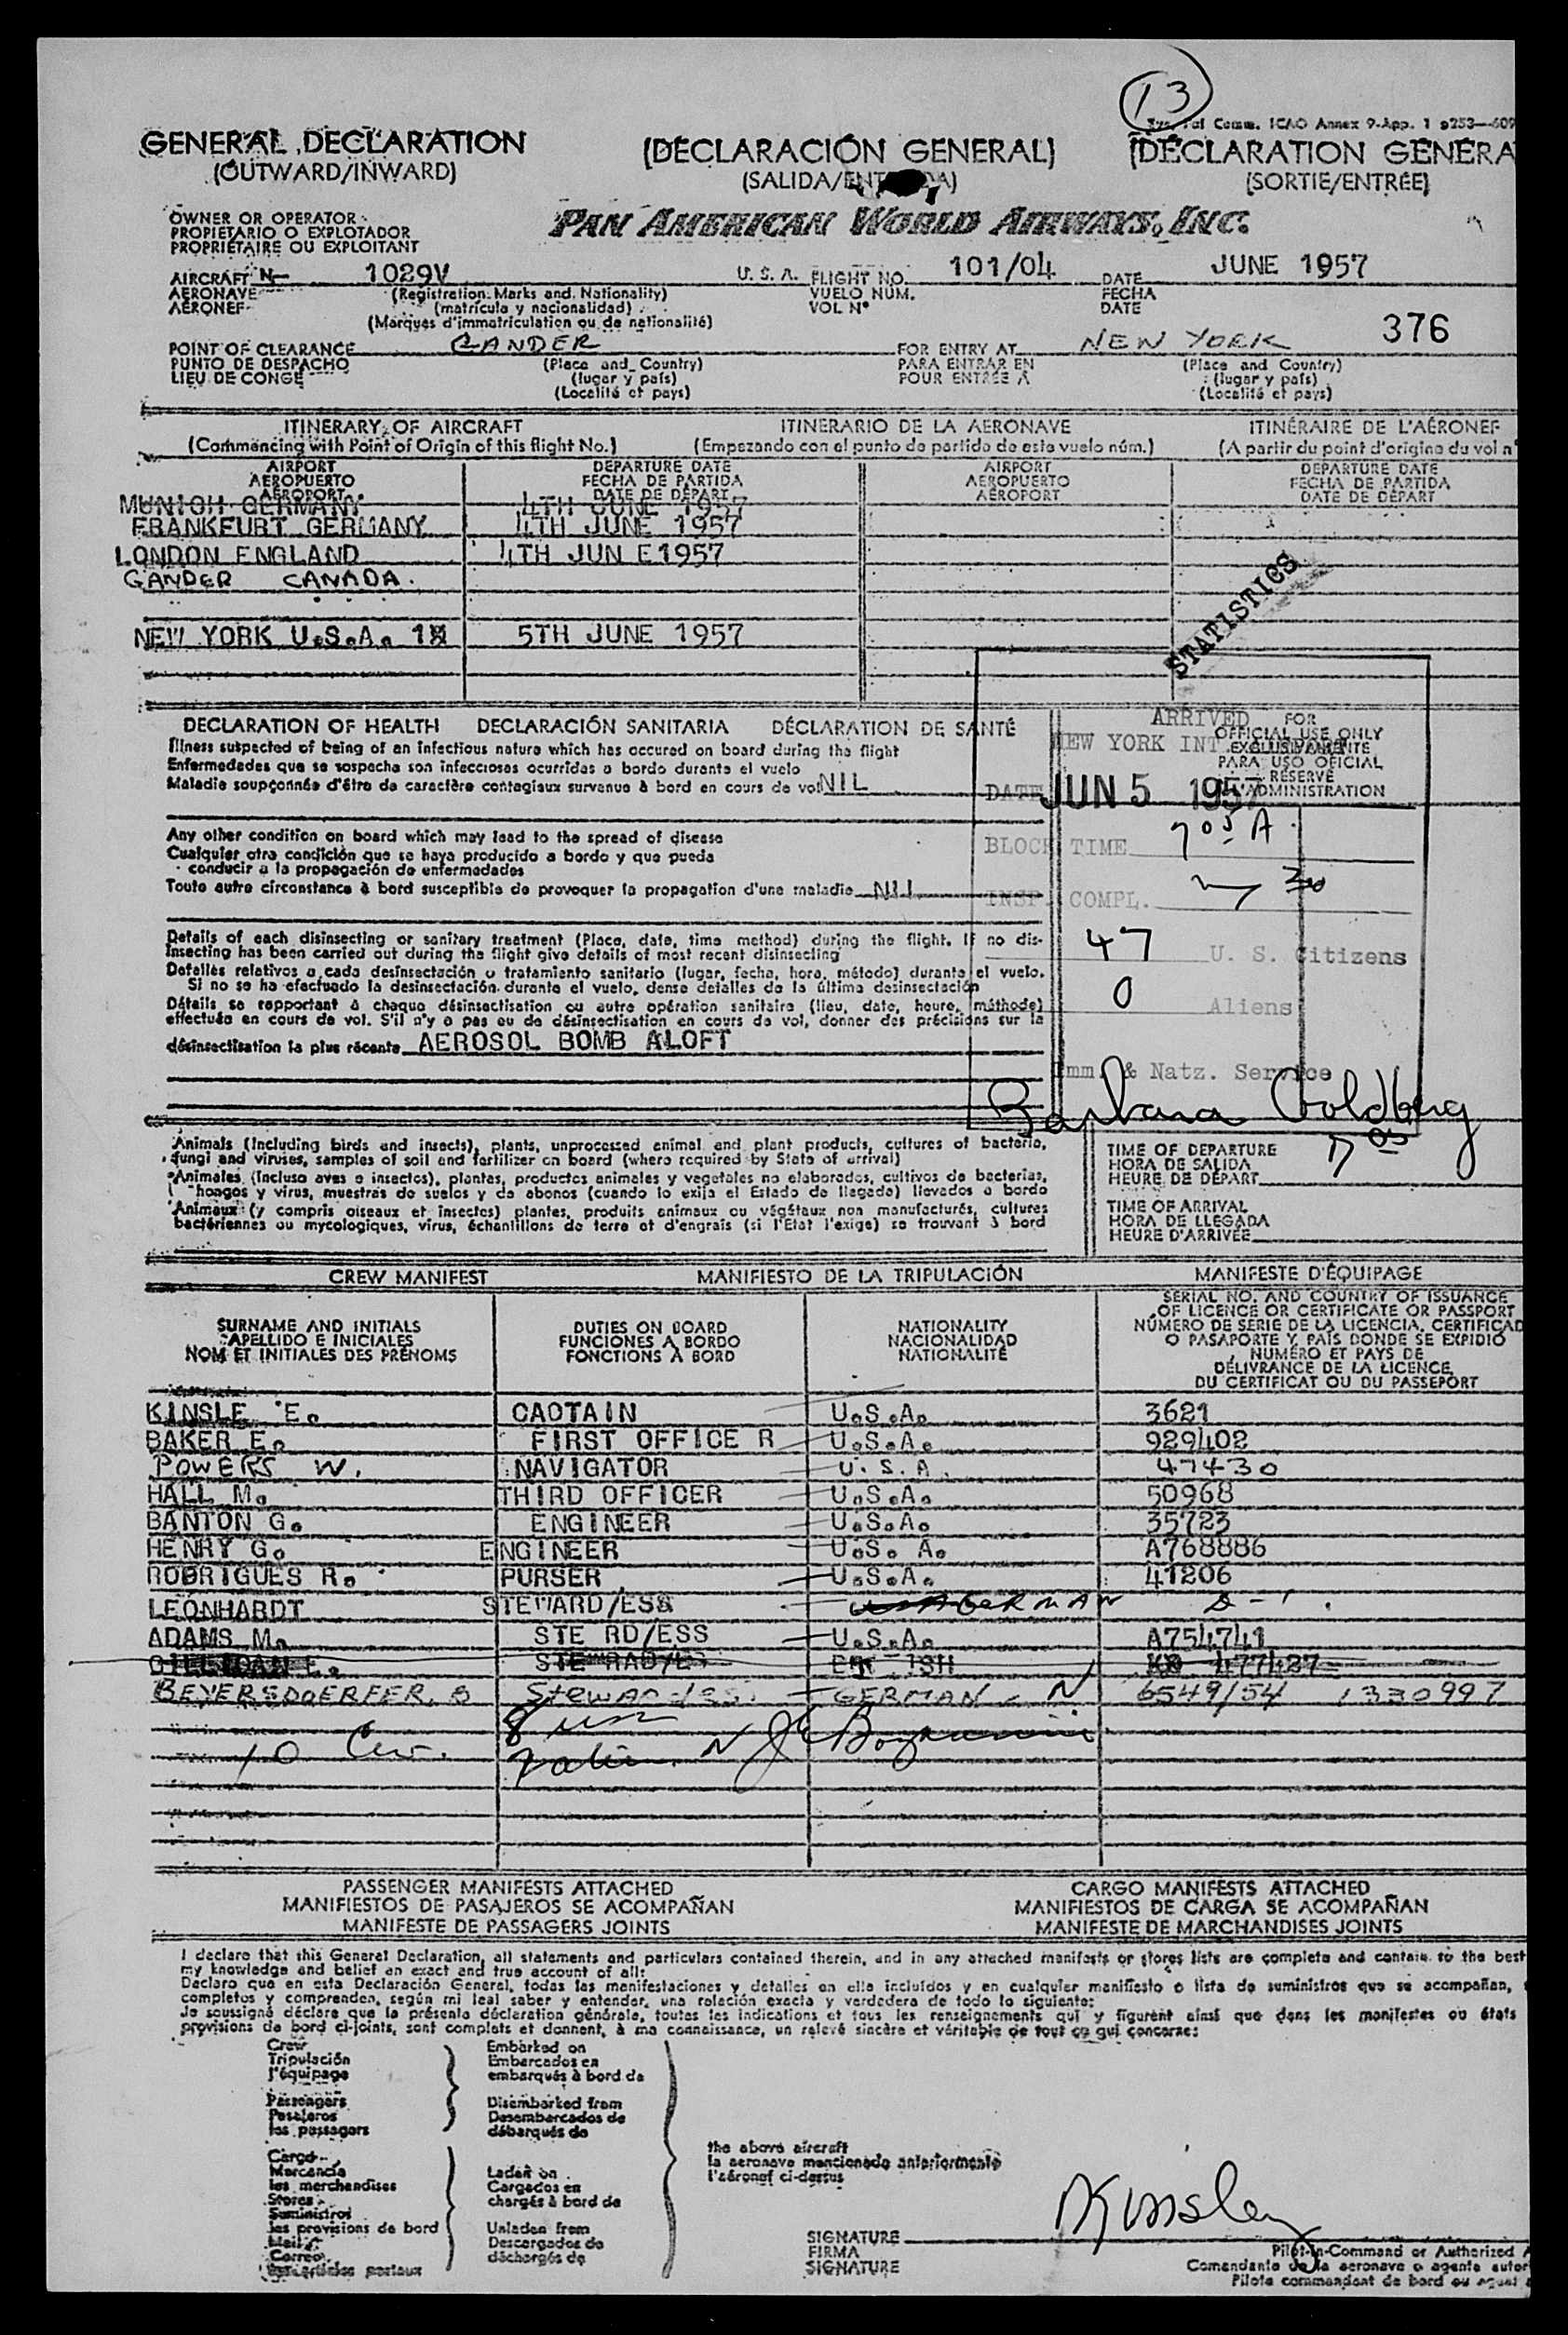 13
ICAO Annex 9-App. 1 p253—609
GENERAL DECLARATION
(OUTWARD/INWARD)
(DECLARACIÓN GENERAL)
(SALIDA/ENTRADA)
(DÉCLARATION GÉNÉRA
(SORTIE/ENTRÉE)
OWNER OR OPERATOR
PROPIETARIO O EXPLOTADOR
PROPRIÉTAIRE OU EXPLOITANT
PAN AMERICAN WORLD AIRWAYS, INC.
AIRCRAFT N- 1029V U. S. A. FLIGHT NO. 101/04 DATE JUNE 1957
AERONAVE (Registration Marks and Nationality) VUELO NUM. FECHA
AÉRONEF (matrícula y nacionalidad) VOL Nº DATE
(Marques d'immatriculation ou de nationalité)
376
POINT OF CLEARANCE GANDER FOR ENTRY AT NEW YORK
PUNTO DE DESPACHO (Place and Country) PARA ENTRAR EN (Place and Country)
LIEU DE CONGÉ (lugar y país) POUR ENTRÉE À (lugar y país)
(Localité et pays) (Localité et pays)
ITINERARY OF AIRCRAFT ITINERARIO DE LA AERONAVE ITINÉRAIRE DE L'AÉRONEF
(Commencing with Point of Origin of this flight No.) (Empezando con el punto de partida de este vuelo núm.) (A partir du point d'origine du vol n°
AIRPORT DEPARTURE DATE AIRPORT DEPARTURE DATE
AEROPUERTO FECHA DE PARTIDA AEROPUERTO FECHA DE PARTIDA
AÉROPORT DATE DE DÉPART AÉROPORT DATE DE DÉPART
MUNICH GERMANY 4TH JUNE 1957
FRANKFURT GERMANY 4TH JUNE 1957
LONDON ENGLAND 4TH JUN E1957
GANDER CANADA.
NEW YORK U.S.A. 5TH JUNE 1957
STATISTICS
DECLARATION OF HEALTH DECLARACIÓN SANITARIA DÉCLARATION DE SANTÉ
Illness suspected of being of an infectious nature which has occured on board during the flight
Enfermedades que se sospecha son infecciosas ocurridas a bordo durante el vuelo
Maladie soupçonnée d'être de caractère contagieux survenue à bord en cours de vol NIL
Any other condition on board which may lead to the spread of disease
Cualquier otra condición que se haya producido a bordo y que pueda
conducir a la propagación de enfermedades
Toute autre circonstance à bord susceptible de provoquer la propagation d'une maladie NIL
Details of each disinsecting or sanitary treatment (Place, date, time method) during the flight. If no dis-
insecting has been carried out during the flight give details of most recent disinsecting
Detalles relativos a cada desinsectación o tratamiento sanitario (lugar, fecha, hora, método) durante el vuelo.
Si no se ha efectuado la desinsectación durante el vuelo, dense detalles de la última desinsectación
Détails se rapportant à chaque désinsectisation ou autre opération sanitaire (lieu, date, heure, méthode)
effectuée en cours de vol. S'il n'y a pas eu de désinsectisation en cours de vol, donner des précisions sur la
désinsectisation la plus récente AEROSOL BOMB ALOFT
FOR
OFFICIAL USE ONLY
PARA USO OFICIAL
RÉSERVÉ
L'ADMINISTRATION
ARRIVED
NEW YORK INT.
DATE JUN 5 1957
BLOCK TIME 705 A
INSP. COMPL. 7 30
47 U. S. Citizens
0 Aliens
Imm. & Natz. Service
Barbara Goldberg
Animals (Including birds and insects), plants, unprocessed animal and plant products, cultures of bacteria,
fungi and viruses, samples of soil and fertilizer on board (where required by State of arrival)
Animales (Incluso aves e insectos), plantas, productos animales y vegetales no elaborados, cultivos de bacterias,
hongos y virus, muestras de suelos y de abonos (cuando lo exija el Estado de llegada) llevados a bordo
Animaux (y compris oiseaux et insectes) plantes, produits animaux ou végétaux non manufacturés, cultures
bactériennes ou mycologiques, virus, échantillons de terre et d'engrais (si l'État l'exige) se trouvant à bord
705
TIME OF DEPARTURE
HORA DE SALIDA
HEURE DE DÉPART
TIME OF ARRIVAL
HORA DE LLEGADA
HEURE D'ARRIVÉE
CREW MANIFEST MANIFIESTO DE LA TRIPULACIÓN MANIFESTE D'ÉQUIPAGE
SURNAME AND INITIALS
APELLIDO E INICIALES
NOM ET INITIALES DES PRÉNOMS
DUTIES ON BOARD
FUNCIONES A BORDO
FONCTIONS À BORD
NATIONALITY
NACIONALIDAD
NATIONALITÉ
SERIAL NO. AND COUNTRY OF ISSUANCE
OF LICENCE OR CERTIFICATE OR PASSPORT
NÚMERO DE SERIE DE LA LICENCIA, CERTIFICAD
O PASAPORTE Y PAÍS DONDE SE EXPIDIÓ
NUMÉRO ET PAYS DE
DÉLIVRANCE DE LA LICENCE,
DU CERTIFICAT OU DU PASSEPORT
KINSLE E. CAOTAIN U.S.A. 3621
BAKER E. FIRST OFFICE R U.S.A. 929402
POWERS W. NAVIGATOR U.S.A. 47430
HALL M. THIRD OFFICER U.S.A. 50968
BANTON G. ENGINEER U.S.A. 35723
HENRY G. ENGINEER U.S. A. A768886
RODRIGUES R. PURSER U.S.A. 41206
LEONHARDT STEWARD/ESS GERMAN
ADAMS M. STE RD/ESS U.S.A. A754741
477427
BEYERSDOERFER. B Stewardess. GERMAN N 6549/54 1330997
10
PASSENGER MANIFESTS ATTACHED CARGO MANIFESTS ATTACHED
MANIFIESTOS DE PASAJEROS SE ACOMPAÑAN MANIFIESTOS DE CARGA SE ACOMPAÑAN
MANIFESTE DE PASSAGERS JOINTS MANIFESTE DE MARCHANDISES JOINTS
I declare that this General Declaration, all statements and particulars contained therein, and in any attached manifests or stores lists are complete and contain to the best
my knowledge and belief an exact and true account of all:
Declaro que en esta Declaración General, todas las manifestaciones y detalles en ella incluídos y en cualquier manifiesto o lista de suministros que se acompañan,
completos y comprenden, según mi leal saber y entender, una relación exacta y verdadera de todo lo siguiente:
Je soussigné déclare que la présente déclaration générale, toutes les indications et tous les renseignements qui y figurent ainsi que dans les manifestes ou états
provisions de bord ci-joints, sont complets et donnent, à ma connaissance, un relevé sincère et véritable de tout ce qui concerne:
Crew
Tripulación
l'équipage
Embarked on
Embarcados en
embarqués à bord de
Passengers
Pasajeros
les passagers
Disembarked from
Desembarcados de
débarqués de
Cargo
Mercancía
les merchandises
Stores
Suministros
les provisions de bord
Mail
Correo
Laden on
Cargados en
chargés à bord de
Unladen from
Descargados de
déchargés de
the above aircraft
la aeronave mencionada anteriormente
l'aéronef ci-dessus
Kinsley
SIGNATURE
FIRMA
SIGNATURE
Pilot-in-Command or Authorized A
Comandante de la aeronave o agente autor
Pilote commandant de bord ou agent